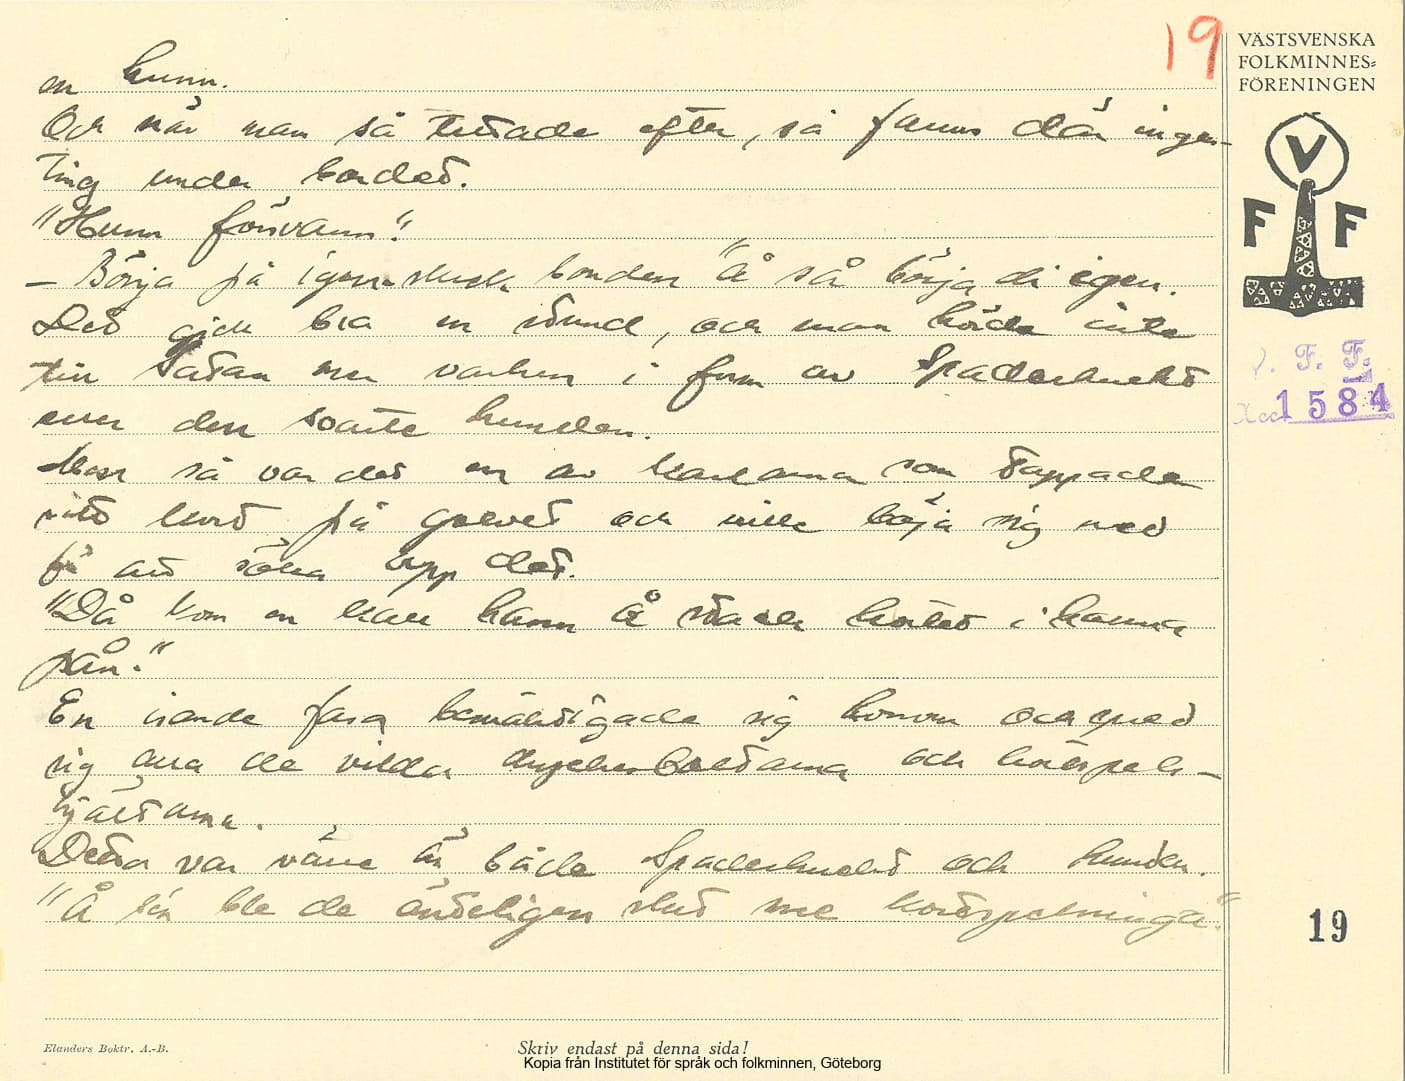 19
VÄSTSVENSKA
FOLKMINNES-
FÖRENINGEN
V
F F
V. F. F.
Acc 1584
en hunn.
Och när man så tittade efter, så fanns där ingen-
ting under bordet.
"Hunn försvann".
– Börja på igen skrek bonden "Å så börja di igen.
Det gick bra en stund, och man hörde inte
till Satan mer varken i form av Spaderknekt
eller den svarte hunden.
Men så var det en av karlarna som tappade
sitt kort på golvet och ville böja sig ned
för att söka upp det.
"Då kom en kall hann å stack kortet i hanna
på'n."
En isande fasa bemäktigade sig honom och spred
sig alla de vilda dryckesbultarna och kortspels-
hjältarna.
Detta var värre än både Spaderknekt och hunden.
"Å sen ble de änteligen slut me kortspelninga".
19
Elanders Boktr. A.-B.
Skriv endast på denna sida!
Kopia från Institutet för språk och folkminnen, Göteborg